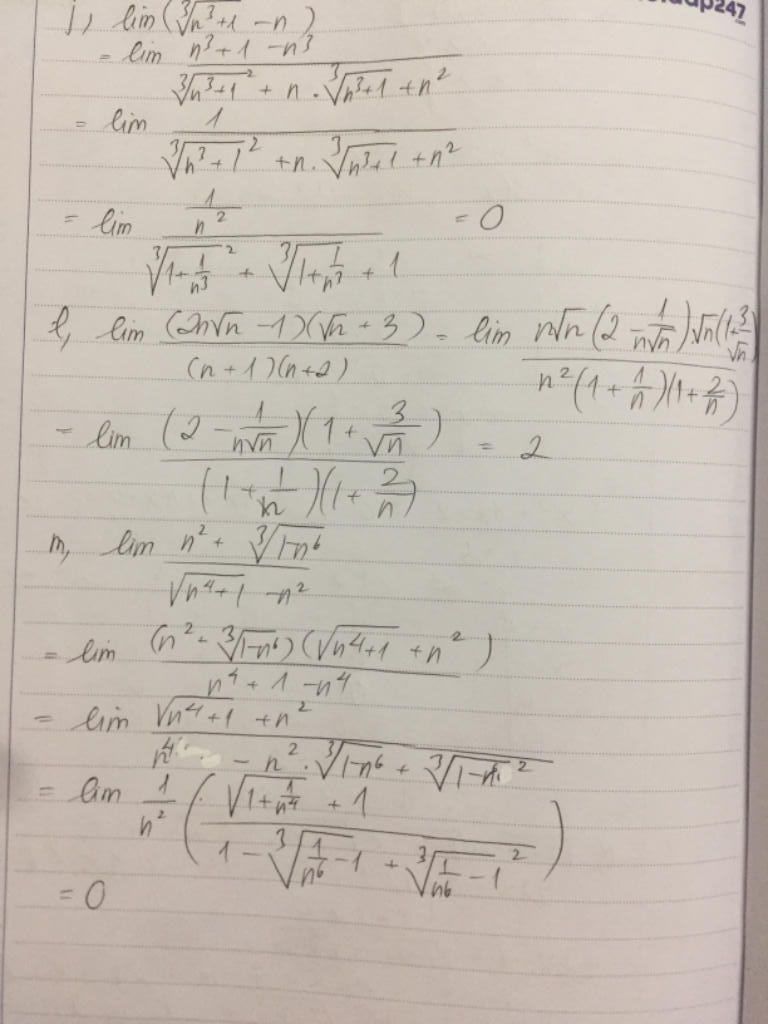 247
j, lim(∛(n³+1) - n)
= lim (n³+1 - n³)/(∛(n³+1)² + n . ∛(n³+1) + n²)
= lim 1/(∛(n³+1)² + n. ∛(n³+1) + n²)
= lim (1/n²)/(∛(1+1/n³)² + ∛(1+1/n³) + 1) = 0
l, lim ((2n√n - 1)(√n + 3))/((n+1)(n+2)) = lim (n√n(2 - 1/(n√n)).√n(1+3/√n))/(n²(1+1/n)(1+2/n))
= lim ((2 - 1/(n√n))(1 + 3/√n))/((1+1/n)(1+2/n)) = 2
m, lim (n² + ∛(1-n⁶))/(√(n⁴+1) - n²)
= lim ((n² - ∛(1-n⁶))(√(n⁴+1) + n²))/(n⁴+1 - n⁴)
= lim (√(n⁴+1) + n²)/(n⁴ - n² . ∛(1-n⁶) + ∛(1-n⁶)²)
= lim 1/n² ((√(1+1/n⁴) + 1)/(1 - ∛(1/n⁶ - 1) + ∛(1/n⁶ - 1)²))
= 0